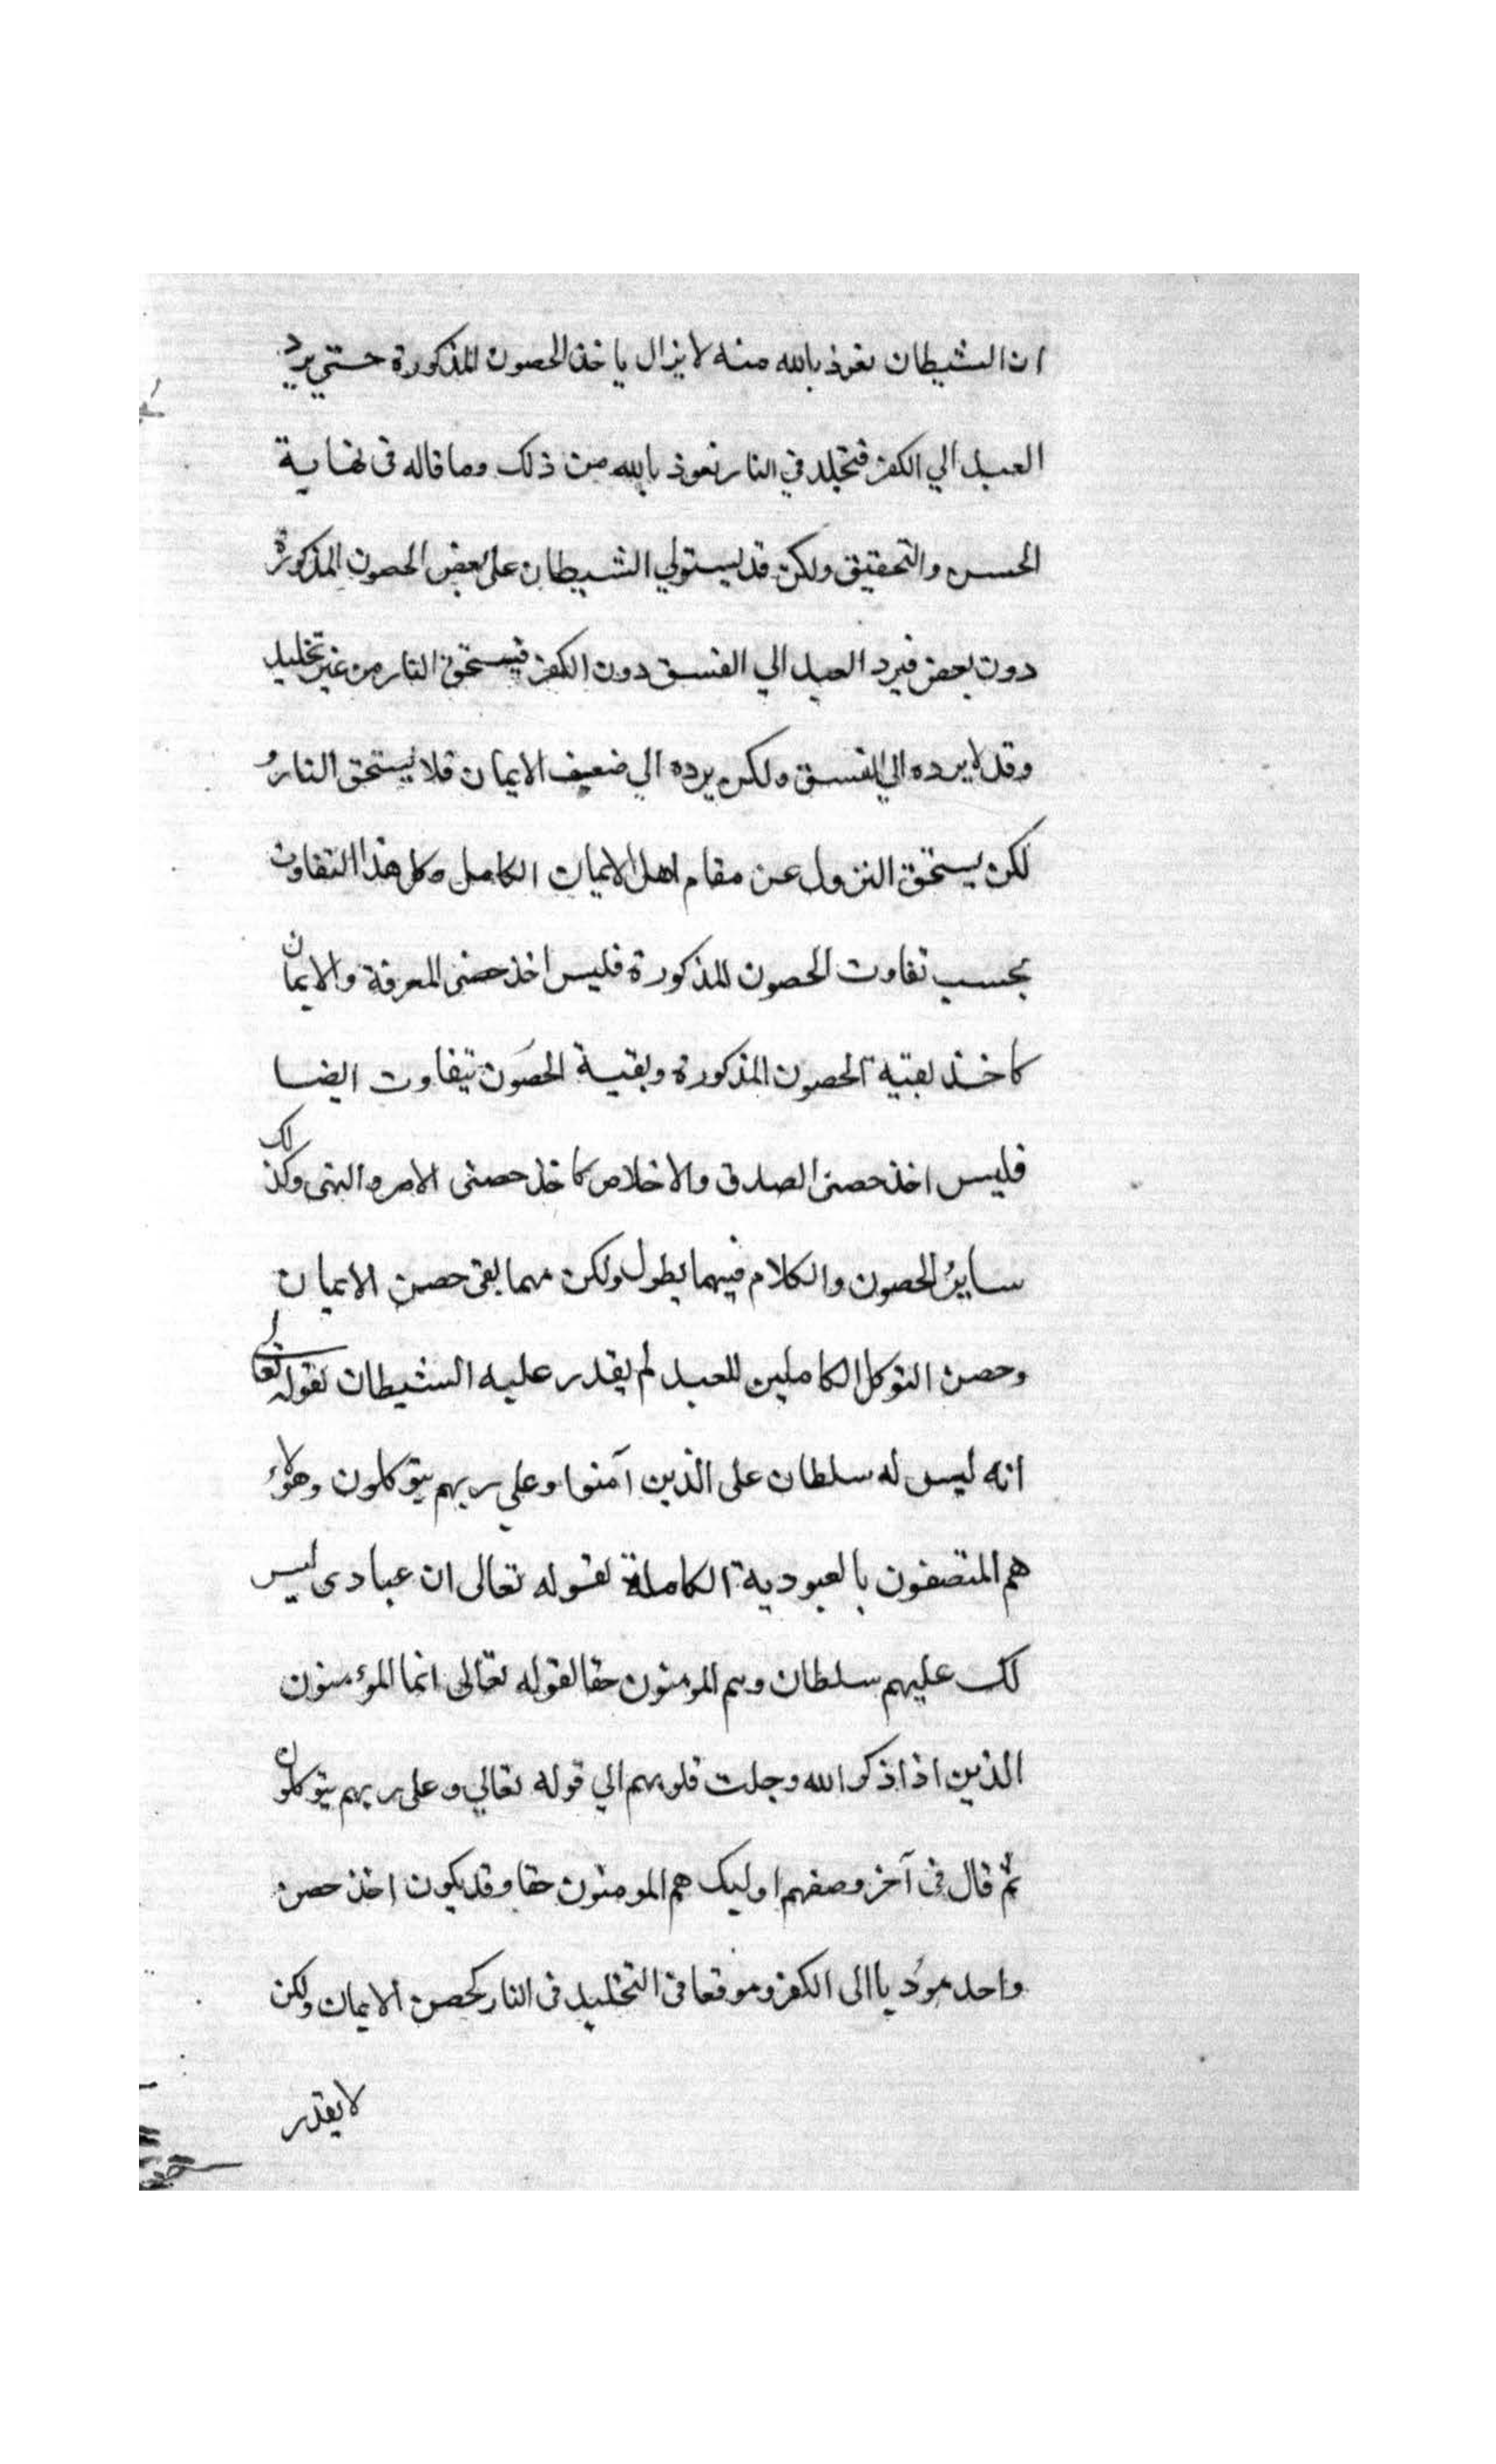 ان الشيطان نعوذ بالله منه لا يزال ياخذ الحصون المذكورة حتي يرد
العبد الي الكفر فيخلد في النار نعوذ بالله من ذلك وما قاله في نهاية
الحسن والتحقيق ولكن قد يستولي الشيطان على بعض الحصون المذكورة
دون بعض فيرد العبد الي الفسق دون الكفر فيستحق النار من غير تخليد
وقد لا يرده الي الفسق ولكن يرده الي ضعيف الايمان فلا يستحق النار و
لكن يستحق النزول عن مقام اهل الايمان الكامل وكل هذا التفاوت
بحسب تفاوت الحصون المذكورة فليس اخذ حصني المعرفة والايمان
كاخذ بقية الحصون المذكورة وبقية الحصون تتفاوت ايضا
فليس اخذ حصني الصدق والاخلاص كاخذ حصني الامر والنهى وكذلك
ساير الحصون والكلام فيهما يطول ولكن مهما بقى حصن الايمان
وحصن التوكل الكاملين للعبد لم يقدر عليه الشيطان لقوله تعالى
انه ليس له سلطان على الذين آمنوا وعلي ربهم يتوكلون وهؤلاء
هم المتصفون بالعبودية الكاملة لقوله تعالى ان عبادى ليس
لك عليهم سلطان وهم المومنون حقا لقوله تعالى انما المؤمنون
الذين اذا ذكر الله وجلت قلوبهم الي قوله تعالي وعلى ربهم يتوكلون
ثم قال في آخر وصفهم اوليك هم المومنون حقا وقد يكون اخذ حصن
واحد موديا الى الكفر وموقعا في التخليد في النار كحصن الايمان ولكن
لا يقدر